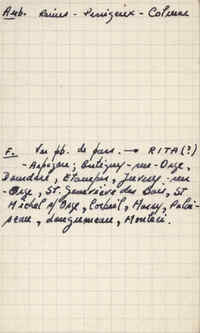 Amb. Reims - Périgueux - Colmar
E. Vu pb. de pers. → RITA (?)
- Arpajon ; Brétigny-sur-Orge,
Dourdan, Etampes, Juvisy-sur-
Orge, St. Geneviève des Bois, St
Michel s/ Orge, Corbeil, Massy, Palai-
seau, Longjumeau, Montlhéri.